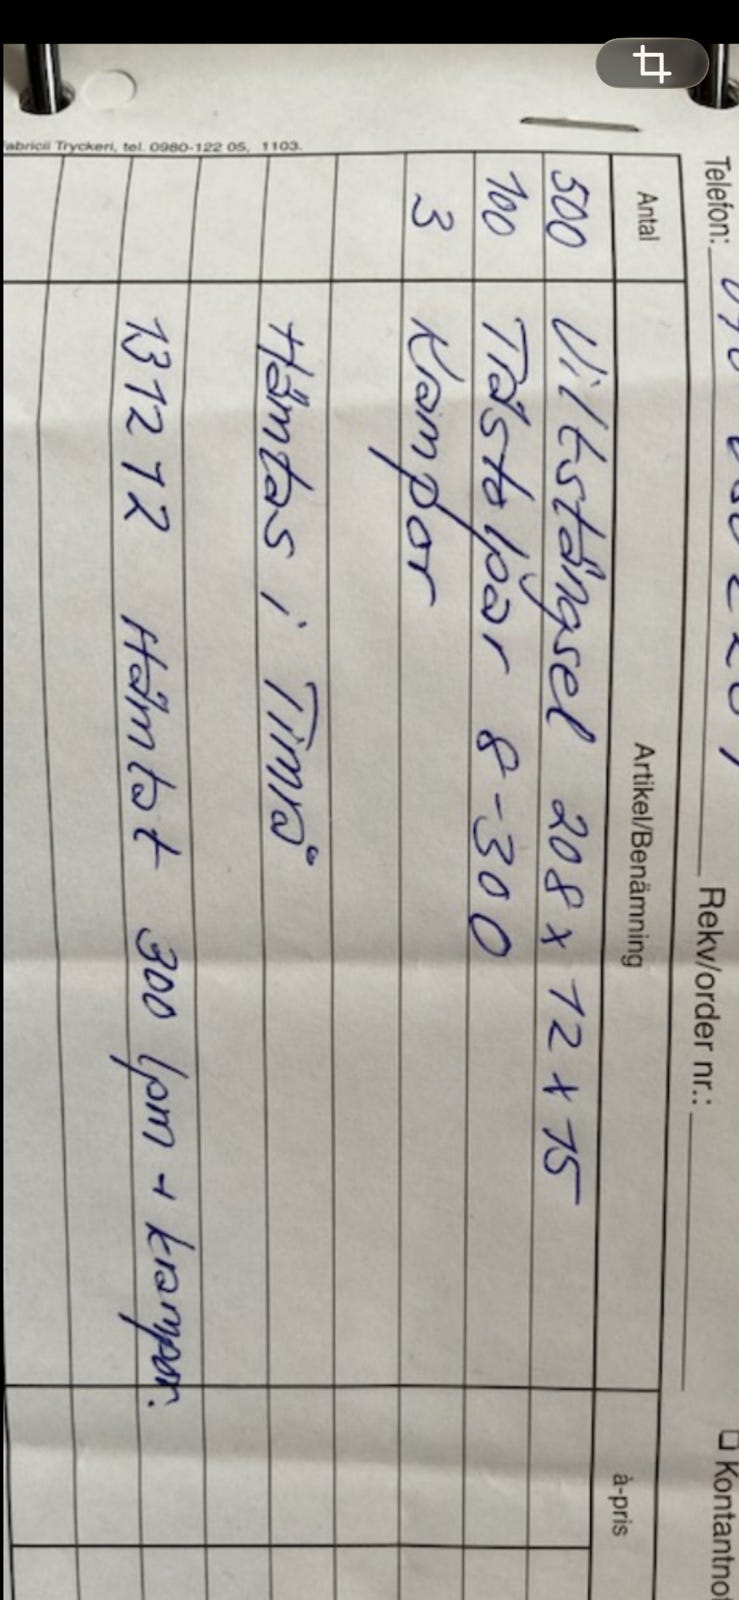 Telefon:
Rekv/order nr.:
Kontantnot
Antal Artikel/Benämning à-pris
500 Viltstängsel 208 x 12 x 15
100 Trästolpar 8-300
3 Krampor
Hämtas i Timrå
131212 Hämtat 300 lpm + krampor.
Fabricii Tryckeri, tel. 0980-122 05, 1103.